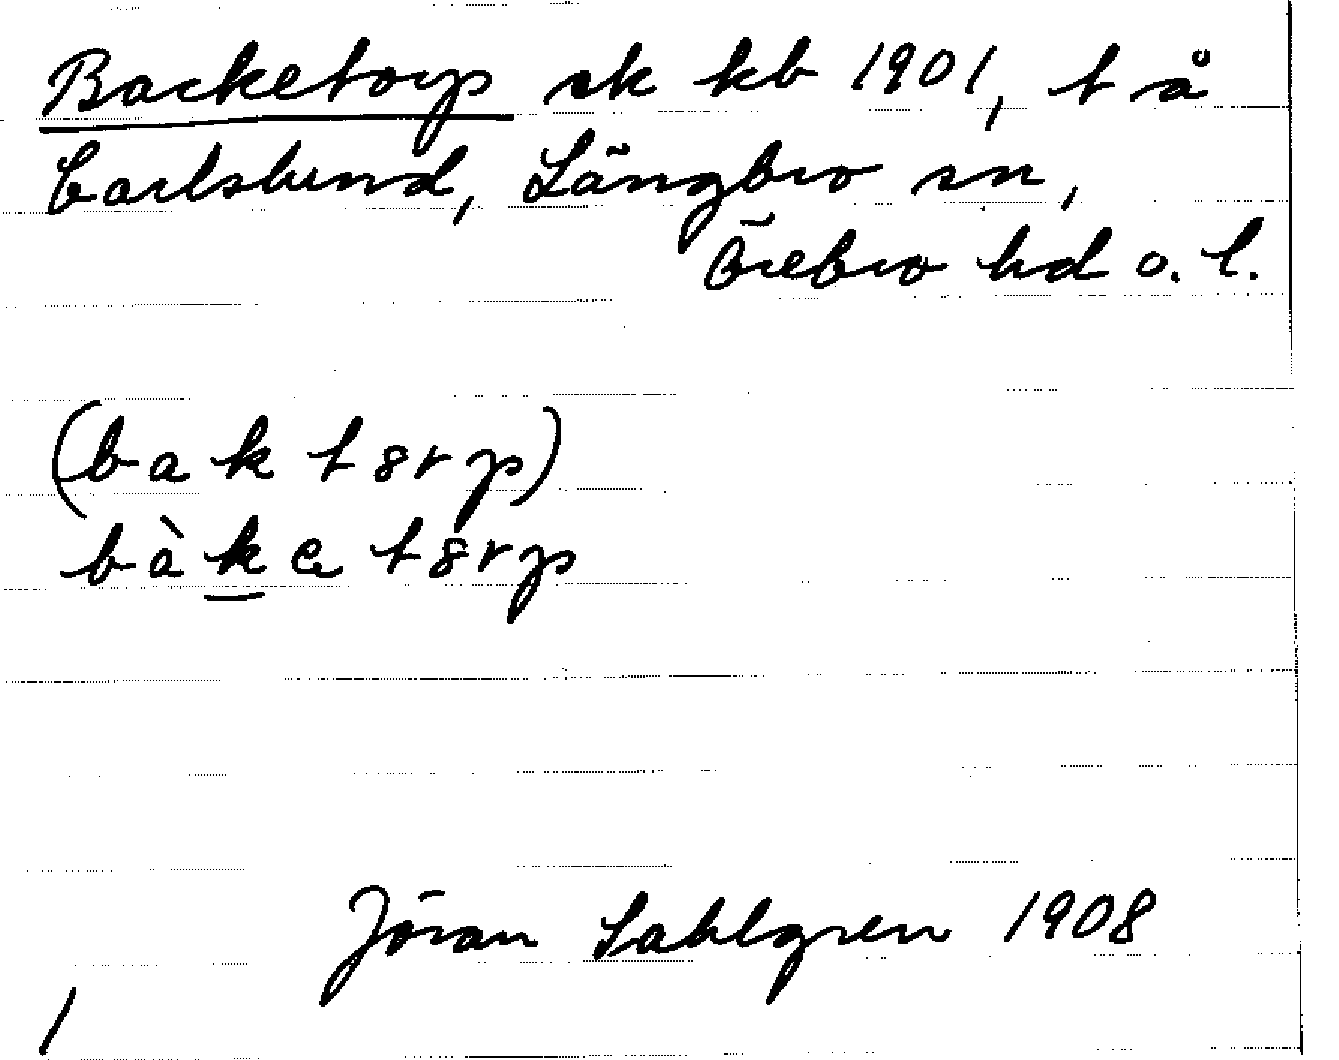 Backetorp sk kb 1901, t å
Carlslund, Längbro sn,
Örebro hd o. l.
(baktȣrp)
bàkeͅtȣrp
Jöran Sahlgren 1908